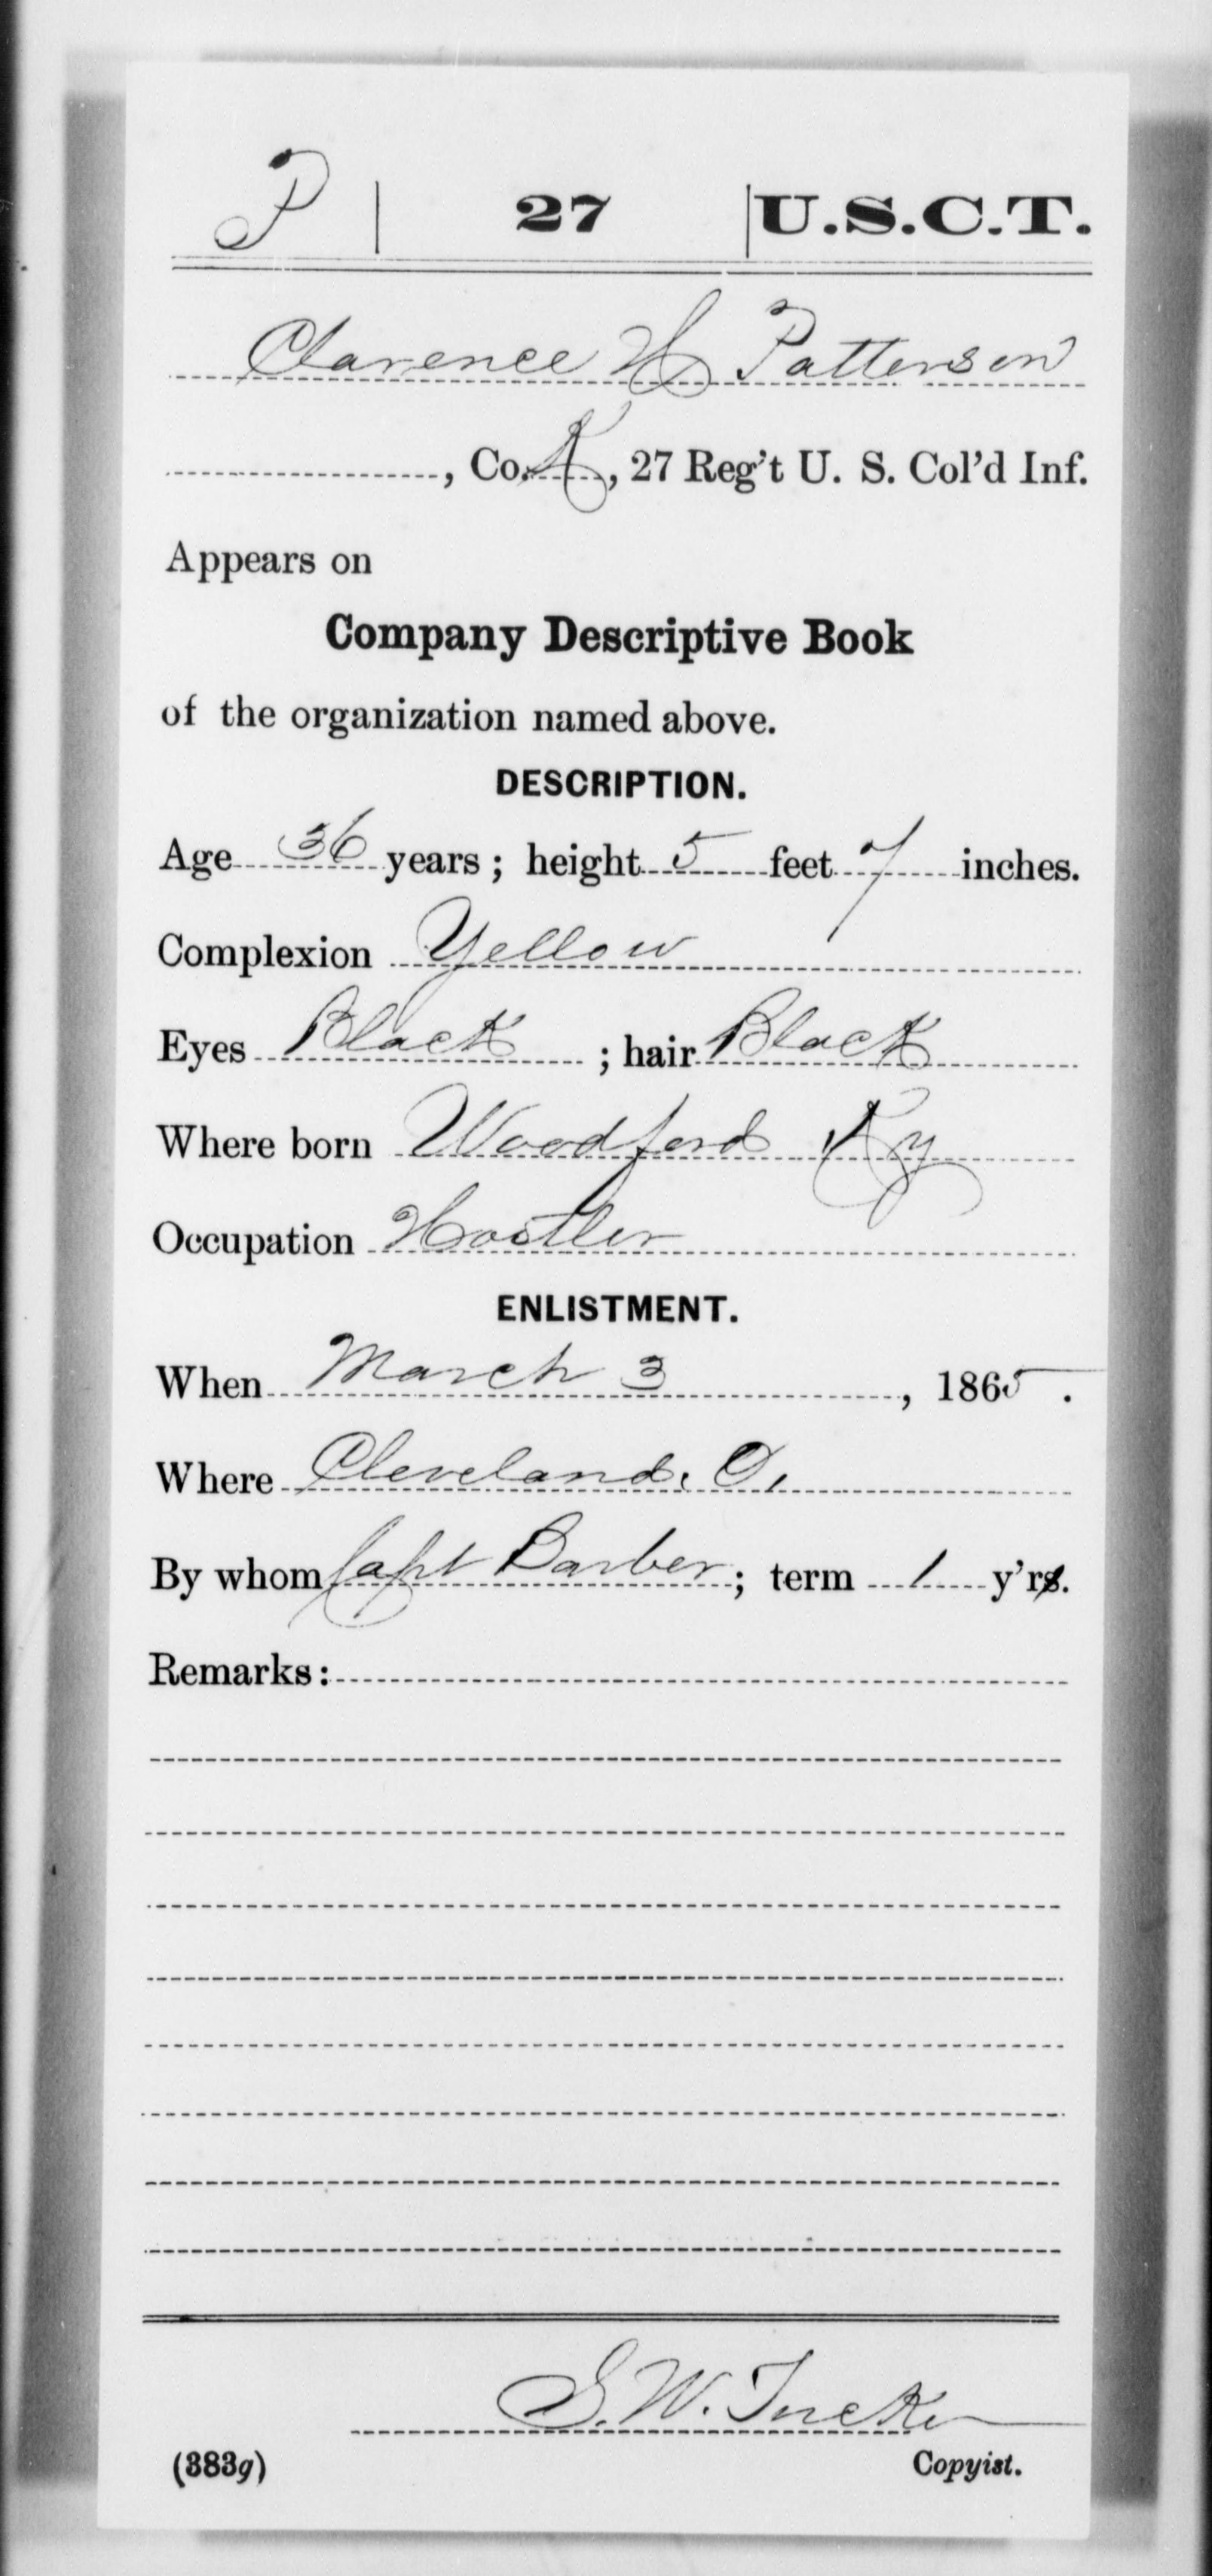 P | 27 | U.S.C.T.
Clarence H Patterson
, Co. K, 27 Reg't U. S. Col'd Inf.
Appears on
Company Descriptive Book
of the organization named above.
DESCRIPTION.
Age 36 years; height 5 feet 7 inches.
Complexion Yellow
Eyes Black; hair Black
Where born Woodford Ky
Occupation Hostler
ENLISTMENT.
When March 3, 1865.
Where Cleveland, O.
By whom Capt Barber; term 1 y'rs.
Remarks:
S. W. Tucker
(383g) Copyist.